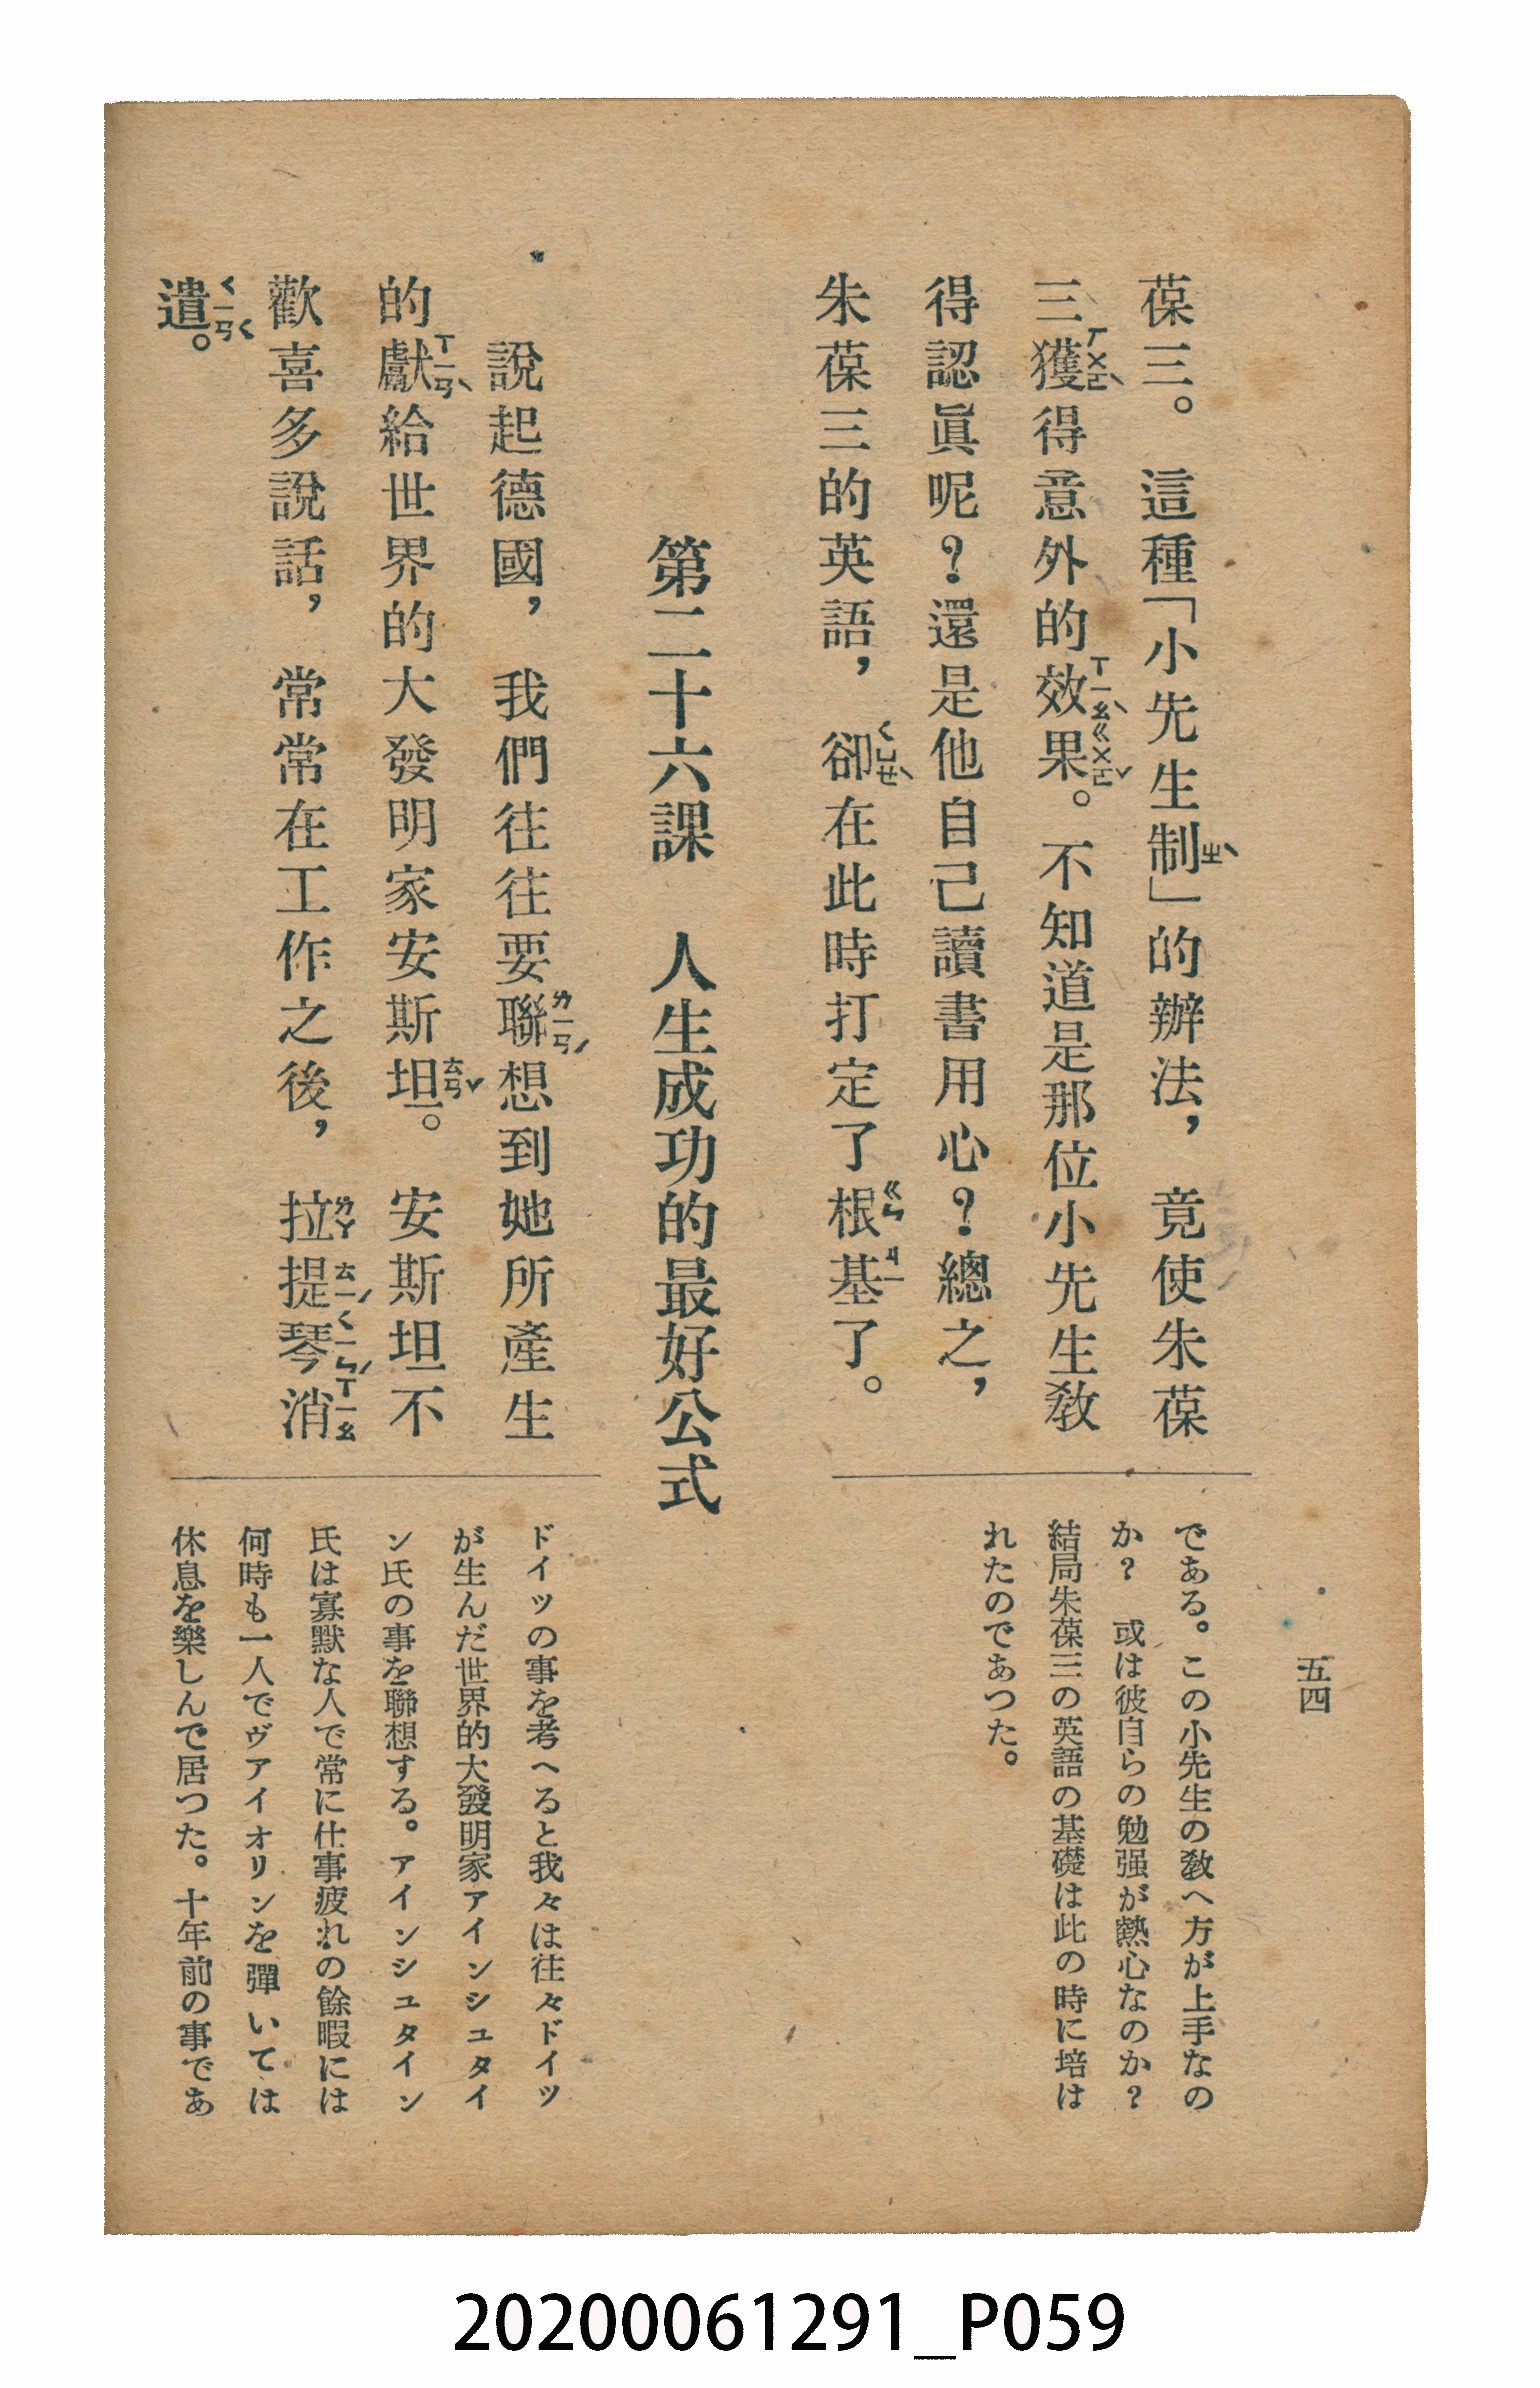 五四
葆三。這種「小先生制」的辦法，竟使朱葆
三獲得意外的效果。不知道是那位小先生教
得認眞呢？還是他自己讀書用心？總之，
朱葆三的英語，卻在此時打定了根基了。
ㄓˋ
ㄏㄨㄛˋ
ㄒㄧㄠˋ
ㄍㄨㄛˇ
ㄑㄩㄝˋ
ㄍㄣ
ㄐㄧ
である。この小先生の敎へ方が上手なの
か？　或は彼自らの勉强が熱心なのか？
結局朱葆三の英語の基礎は此の時に培は
れたのであつた。
第二十六課　人生成功的最好公式
說起德國，我們往往要聯想到她所產生
的獻給世界的大發明家安斯坦。安斯坦不
歡喜多說話，常常在工作之後，拉提琴消
遣。
ㄌㄧㄢˊ
ㄒㄧㄢˋ
ㄊㄢˇ
ㄌㄚ
ㄊㄧˊ
ㄑㄧㄣˊ
ㄒㄧㄠ
ㄑㄧㄢˇ
ドイツの事を考へると我々は往々ドイツ
が生んだ世界的大發明家アインシュタイ
ン氏の事を聯想する。アインシュタイン
氏は寡默な人で常に仕事疲れの餘暇には
何時も一人でヴアイオリンを彈いては
休息を樂しんで居つた。十年前の事であ
20200061291_P059